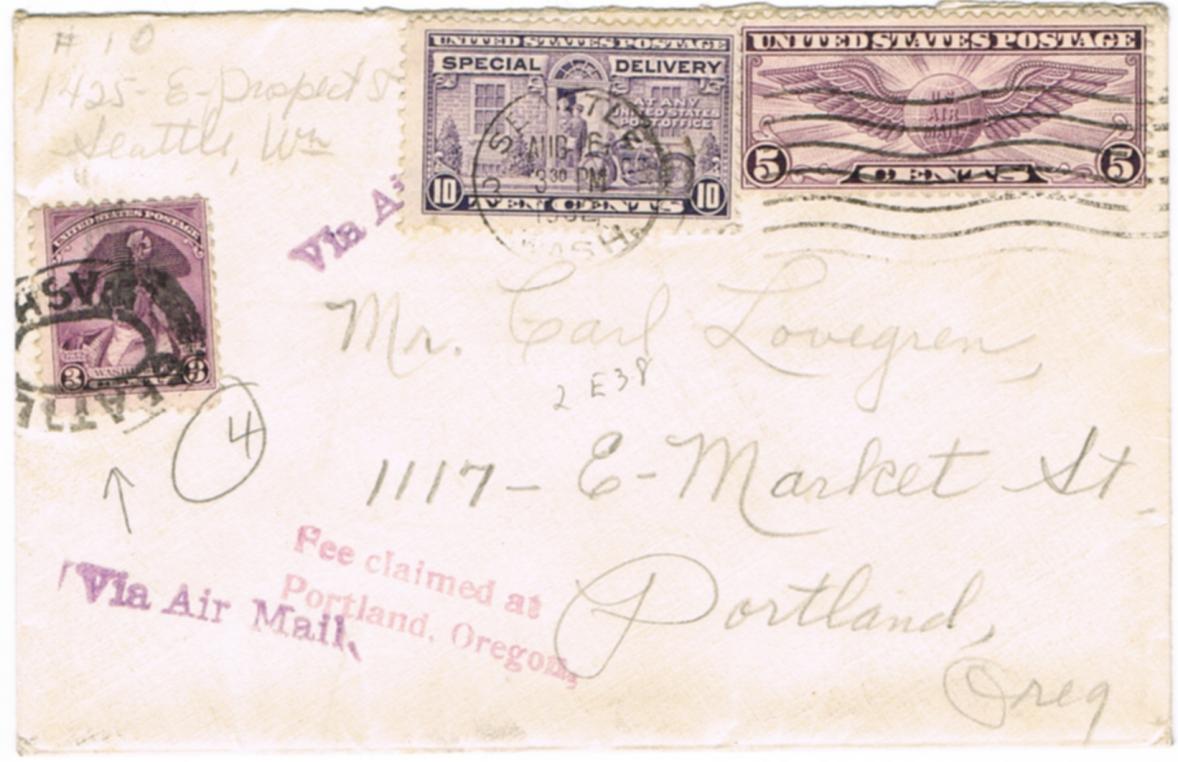 # 10
1425-E-Prospect S
Seattle, Wn
UNITED STATES POSTAGE
SPECIAL DELIVERY
AT ANY
UNITED STATES
POST OFFICE
10 TEN CENTS 10
UNITED STATES POSTAGE
U.S.
AIR
MAIL
5 CENTS 5
SEATTLE
AUG 6
3 30 PM
1932
WASH.
Via Ai
UNITED STATES POSTAGE
3 3
WASH
SEATTLE
4
Mr. Carl Lovegren,
2 E38
1117- E-Market St
Portland,
Oreg
Fee claimed at
Portland, Oregon,
Via Air Mail.